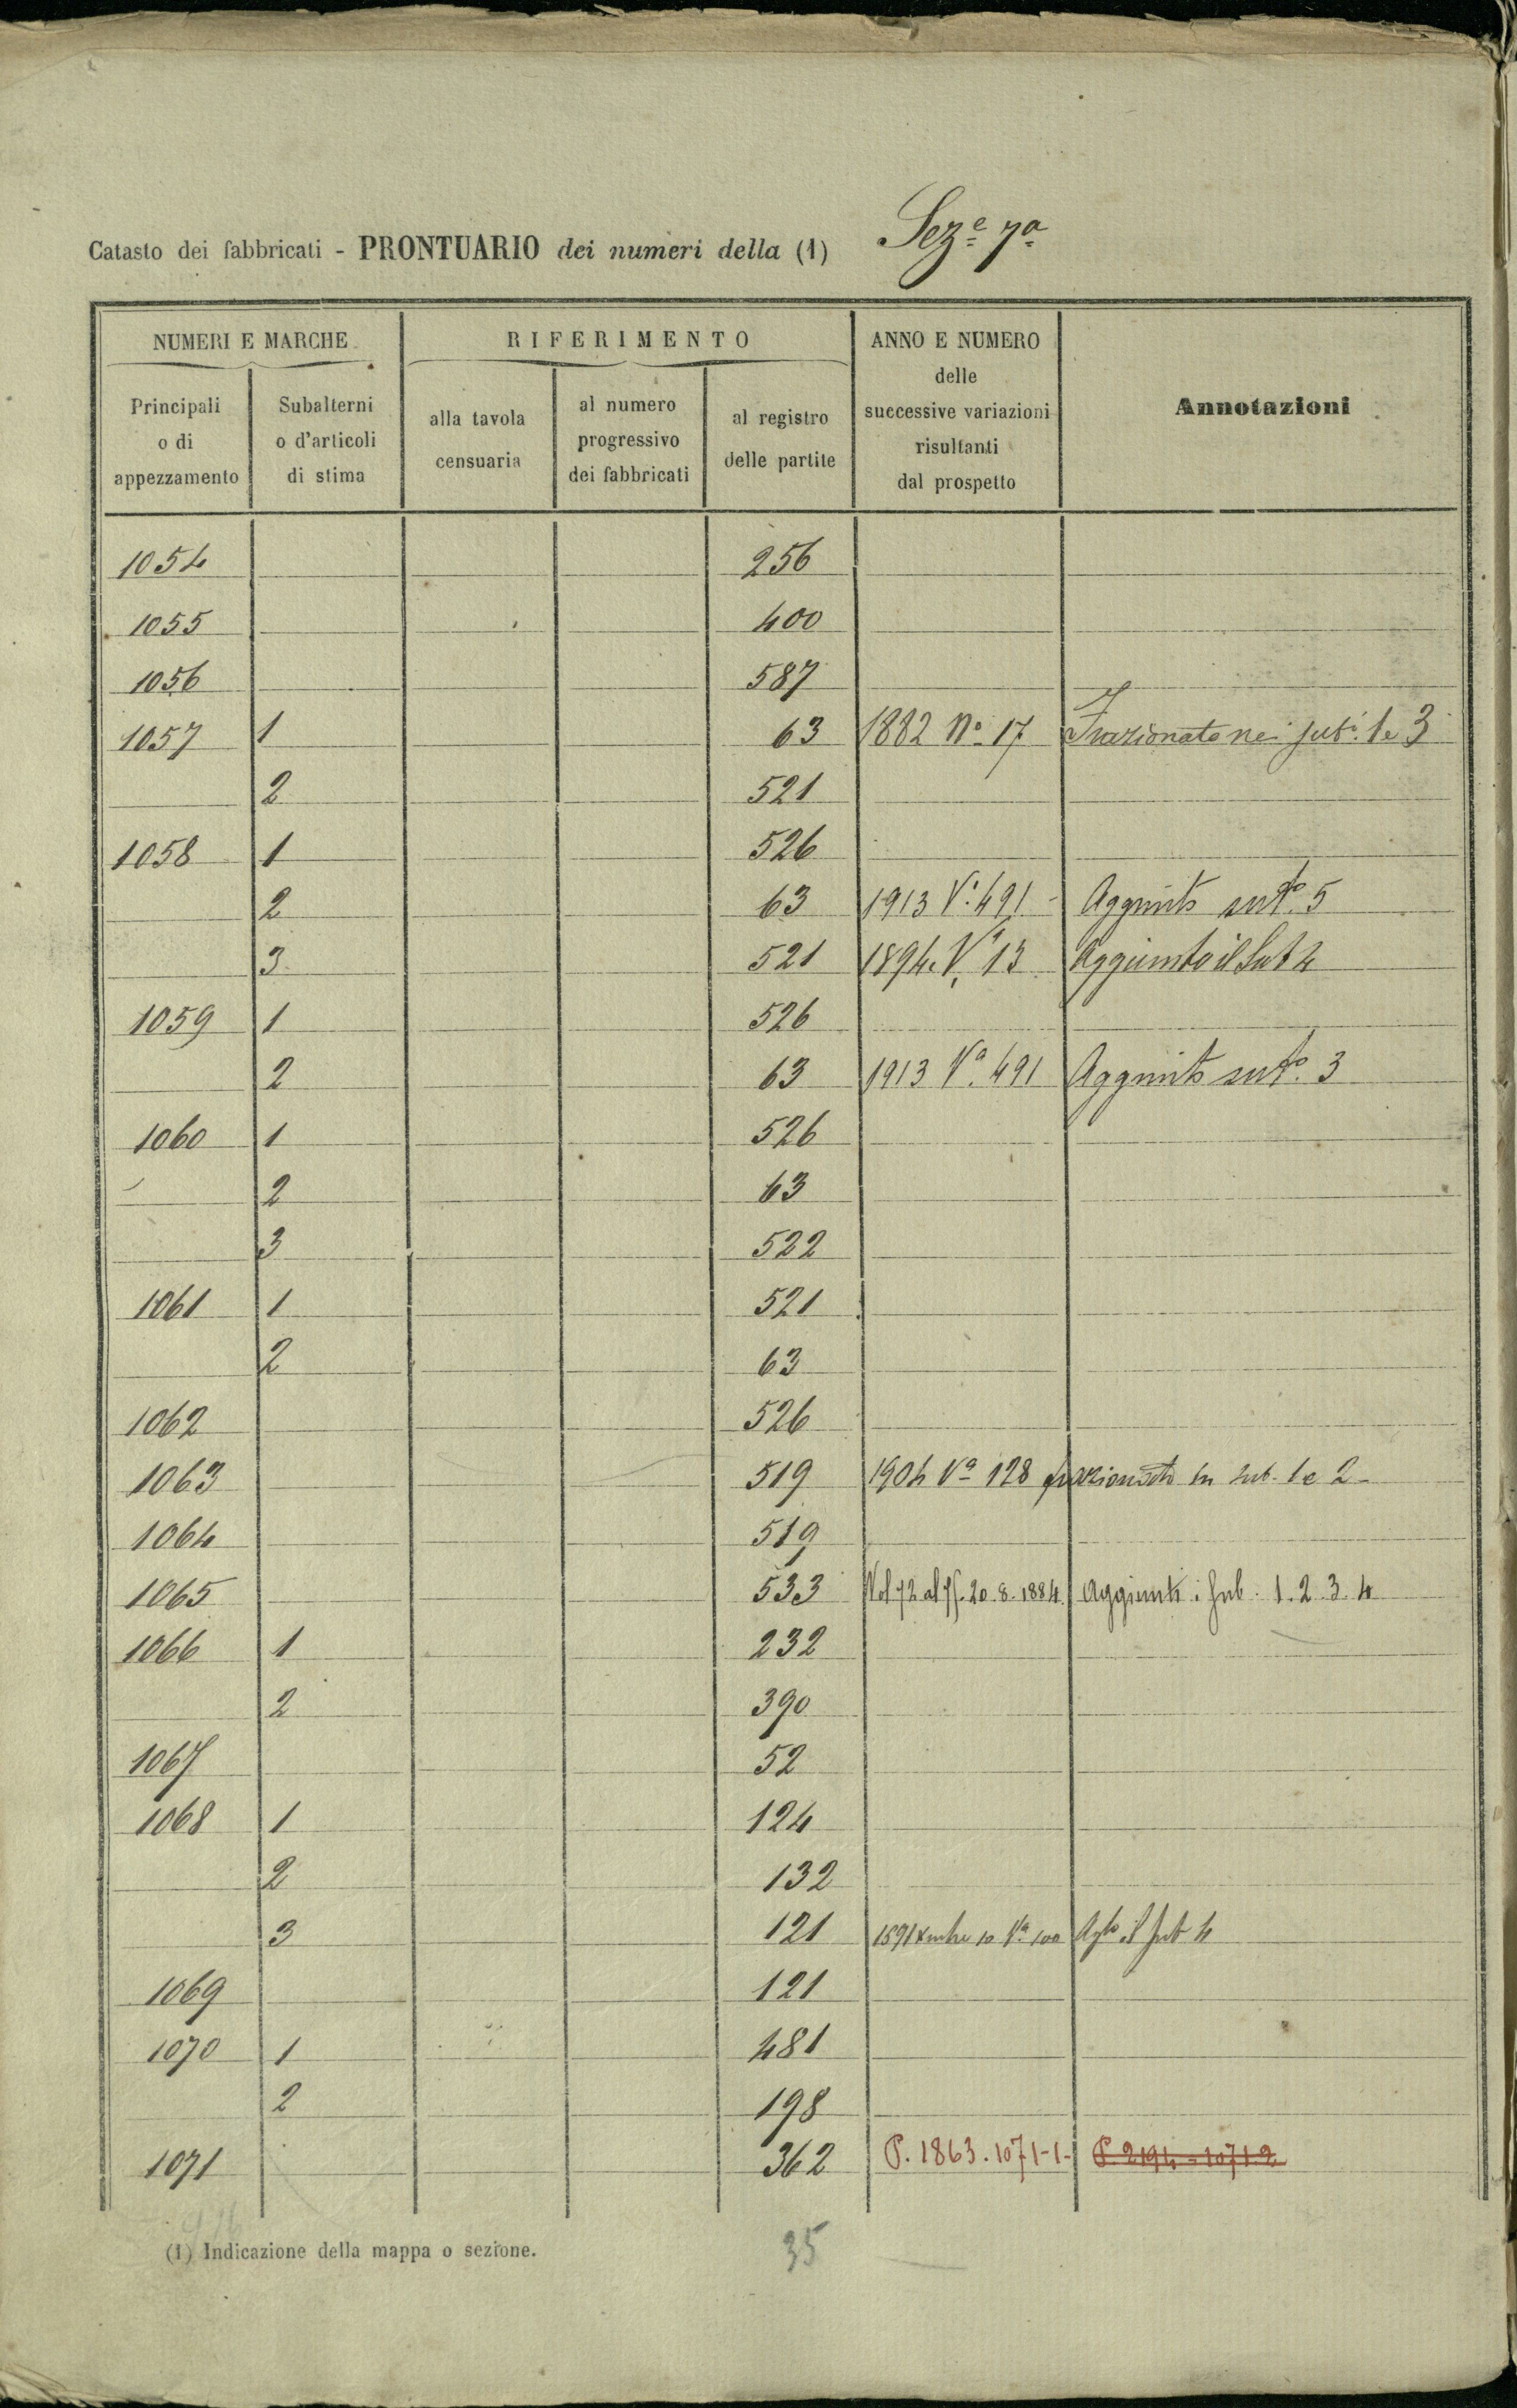 Catasto dei fabbricati - PRONTUARIO dei numeri della (1) Seze 7a
NUMERI E MARCHE
RIFERIMENTO
ANNO E NUMERO
delle
successive variazioni
risultanti
dal prospetto
Annotazioni
Principali
o di
appezzamento
Subalterni
o d'articoli
di stima
alla tavola
censuaria
al numero
progressivo
dei fabbricati
al registro
delle partite
1054 256
1055 400
1056 587
1057 1 63 1882 No 17 Frazionato nei subi. 1 e 3
2 521
1058 1 526
2 63 1913 Va. 491 - Aggiunto subo. 5
3 521 1894. Va 13 Aggiunto il Sub 4
1059 1 526
2 63 1913 Va. 491 Aggiunto subo. 3
1060 1 526
2 63
3 522
1061 1 521
2 63
1062 526
1063 519 1904 Va 128 frazionato in sub. 1 e 2 -
1064 519
1065 533 Vol 72 al 75. 20.8.1884. Aggiunti i sub. 1.2.3.4
1066 1 232
2 390
1067 52
1068 1 124
2 132
3 121 1891 Xmbre 10 Va 100 Agto il sub 4
1069 121
1070 1 481
2 198
1071 362 P. 1863. 1071-1- P 2194 - 1071 2
(1) Indicazione della mappa o sezione.
35